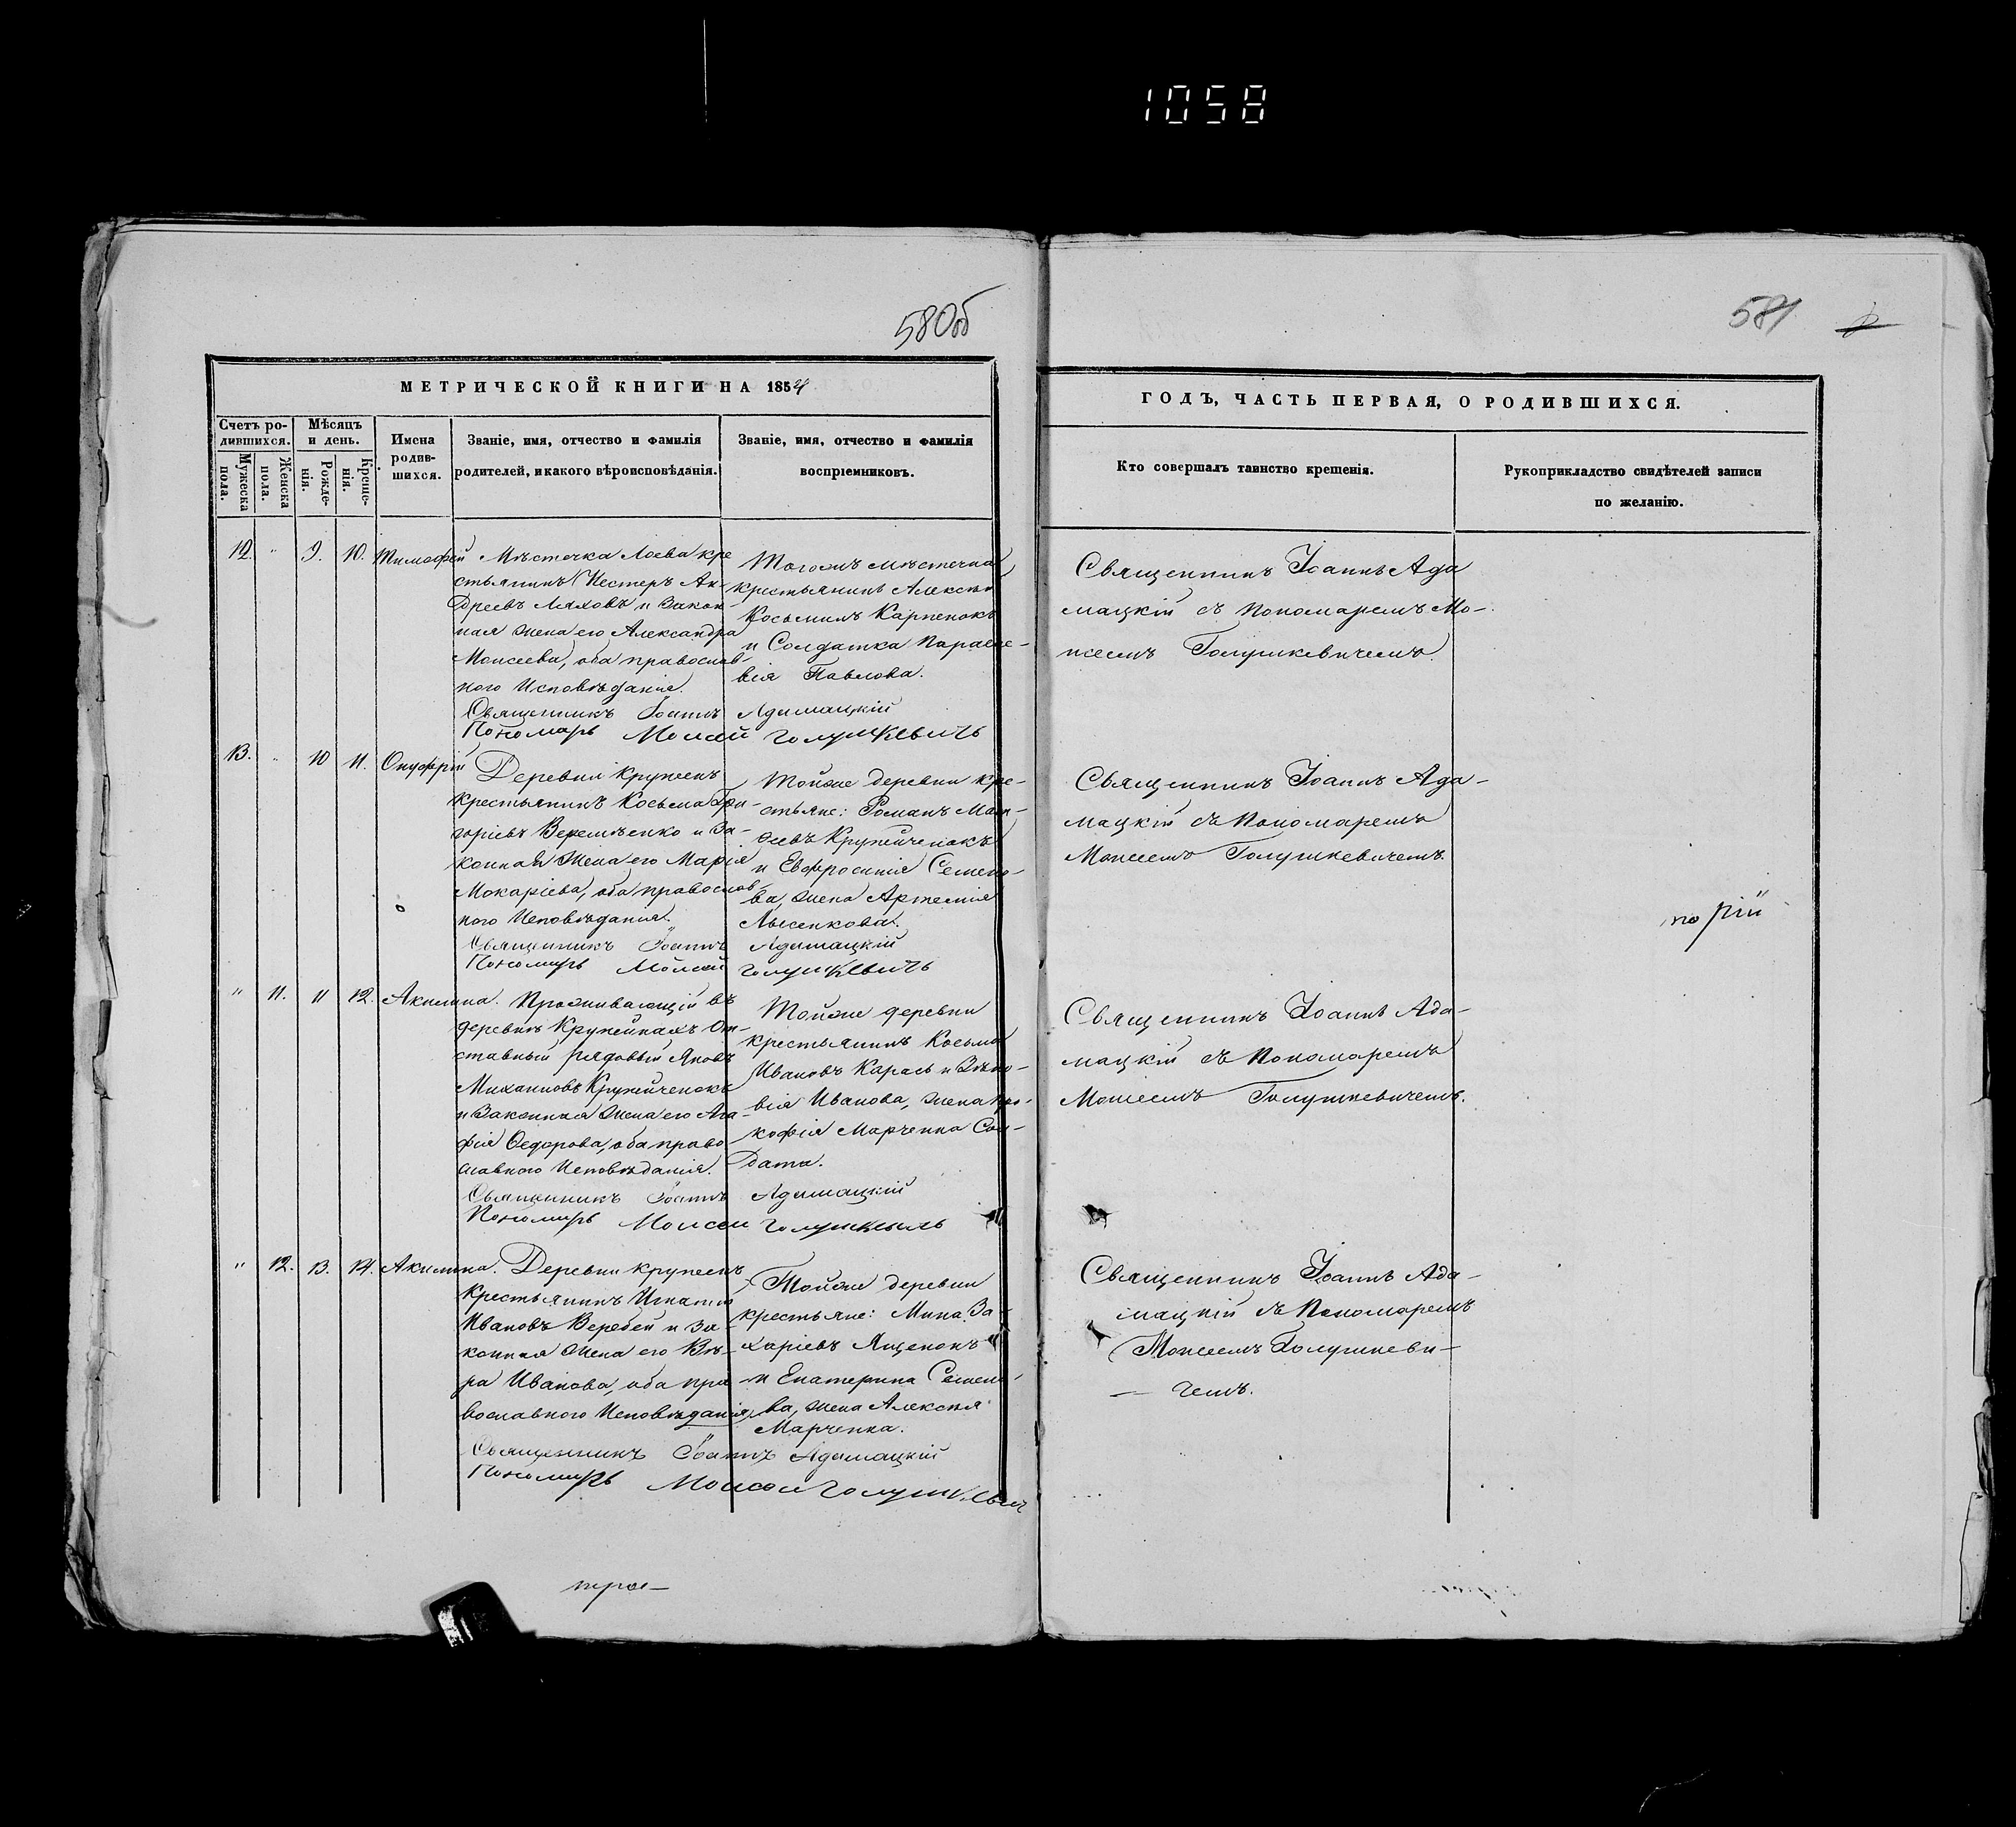 1058
580об
581
МЕТРИЧЕСКОЙ КНИГИ НА 1854
ГОДЪ, ЧАСТЬ ПЕРВАЯ, О РОДИВШИХСЯ.
Счетъ ро-
дившихся.
Мужеска
пола.
Женска
пола.
Мѣсяцъ
и день.
Рожде-
нія.
Креще-
нія.
Имена
родив-
шихся.
Званіе, имя, отчество и фамилія
родителей, и какого вѣроисповѣданія.
Званіе, имя, отчество и фамилія
воспріемниковъ.
Кто совершалъ таинство крещенія.
Рукоприкладство свидѣтелей записи
по желанію.
12. " 9. 10. Тимофей
Мѣстечка Лоева кре
стьянинъ Нестеръ Ан-
дреевъ Ляховъ и закон-
ная жена его Александра
Моисеева, оба православ-
ного Исповѣданія.
Тогожъ мѣстечка
крестьянинъ Алексѣй
Косьминъ Карпенокъ
и Солдатка Параске-
вія Павлова.
Священникъ Іоаннъ Адамацкій
Пономарь Моисей Голушкевичъ
Священникъ Іоаннъ Ада
мацкій съ Пономаремъ Мо-
исеемъ Голушкевичемъ.
13. " 10 11. Онуфрій
Деревни Крупекъ
крестьянинъ Косьма Гри-
горіевъ Веремѣенко и за-
конная жена его Марія
Мокаріева, оба православ-
ного Исповѣданія.
Тойже деревни кре-
стьяне: Романъ
Крупейченокъ
и Евфросинія Семено-
ва, жена Артемія
Лысенкова.
Священникъ Іоаннъ Адамацкій
Пономарь Моисей Голушкевичъ
Священникъ Іоаннъ Ада-
мацкій съ Пономаремъ
Моисеемъ Голушкевичемъ.
" 11. 11 12. Акилина.
Проживающій въ
деревнѣ Крупейкахъ От-
ставный рядовый Яковъ
Михайловъ Крупейченокъ
и Законная жена его Ага-
фія Федорова, оба право
славного Исповѣданія.
Тойже деревни
крестьянинъ Косьма
Ивановъ Карась и Зѣно-
вія Иванова, жена Про-
кофія Марченка Сол-
дата.
Священникъ Іоаннъ Адамацкій
Пономарь Моисей Голушкевичъ
Священникъ Іоаннъ Ада-
мацкій съ Пономаремъ
Моисеемъ Голушкевичемъ.
" 12. 13. 14. Акилина.
Деревни Крупекъ
Крестьянинъ Игнатій
Ивановъ Веребей и за-
конная жена его Вѣ-
ра Иванова, оба пра-
вославного Исповѣданія.
Тойже деревни
крестьяне: Мина За-
харіевъ Ященокъ
и Екатерина Семено-
ва, жена Алексѣя
Марченка.
Священникъ Іоаннъ Адамацкій
Пономарь Моисей Голушкевич
Священникъ Іоаннъ Ада-
мацкій съ Пономаремъ
Моисеемъ Голушкеви-
чемъ.